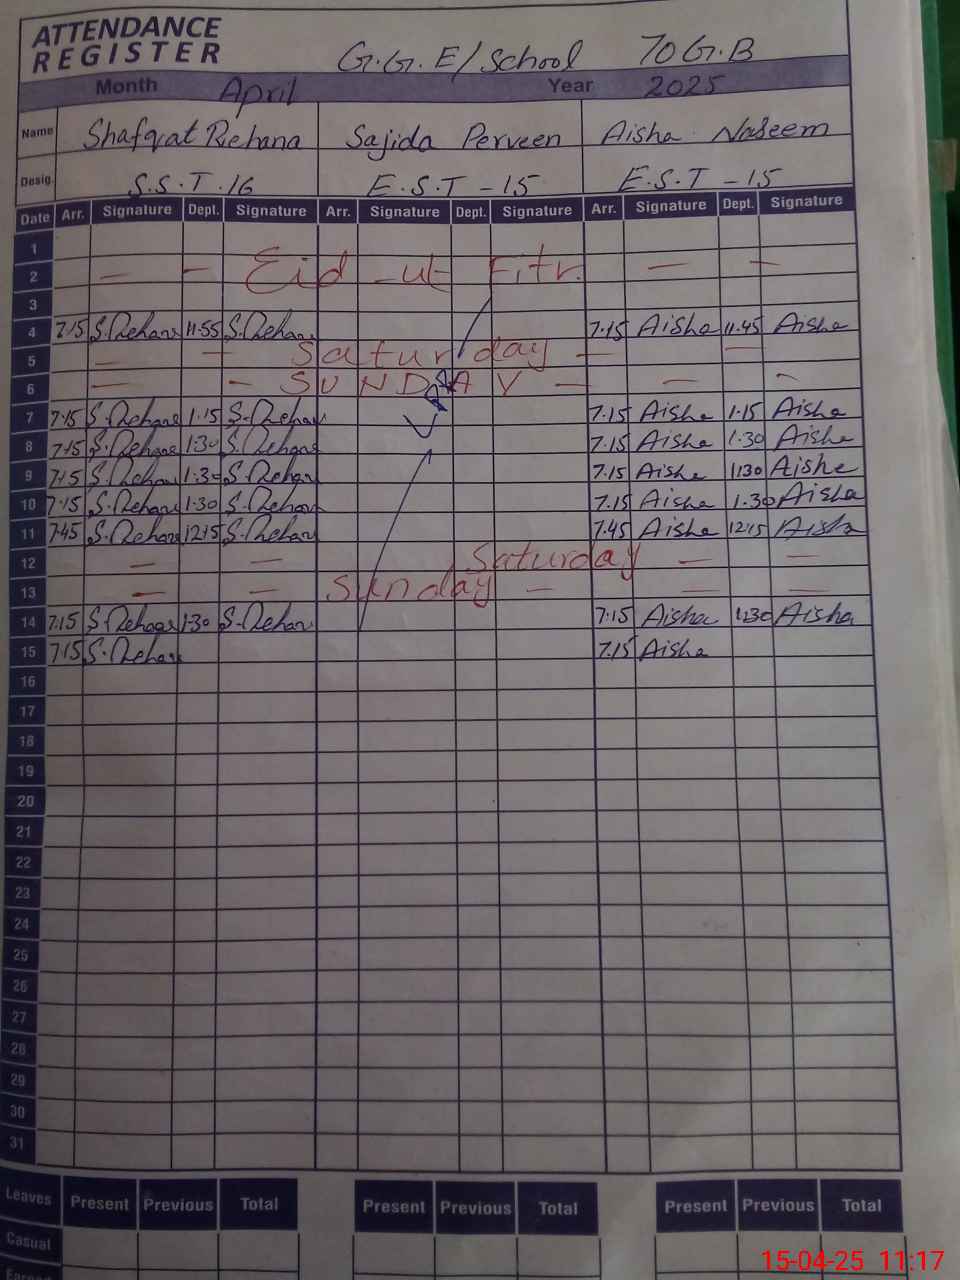 ATTENDANCE
REGISTER
G.G.E/School 70 G.B
Month April Year 2025
Name Shafqat Rehana Sajida Perveen Aisha Naseem
Desig. S.S.T.16 E.S.T-15 E.S.T-15
Date Arr. Signature Dept. Signature Arr. Signature Dept. Signature Arr. Signature Dept. Signature
1
2 — — Eid-ut Fitr. — —
3
4 7.15 S.Rehana 11.55 S.Rehana 7.15 Aisha 11.45 Aisha
5 — — Saturday — —
6 — — SUNDAY — — —
7 7.15 S.Rehana 1.15 S.Rehana 7.15 Aisha 1.15 Aisha
8 7.15 S.Rehana 1.30 S.Rehana 7.15 Aisha 1.30 Aisha
9 7.15 S.Rehana 1.30 S.Rehana 7.15 Aisha 1.30 Aisha
10 7.15 S.Rehana 1.30 S.Rehana 7.15 Aisha 1.30 Aisha
11 7.45 S.Rehana 12.15 S.Rehana 7.45 Aisha 12.15 Aisha
12 — — Saturday — —
13 — — Sunday — — —
14 7.15 S.Rehana 1.30 S.Rehana 7.15 Aisha 1.30 Aisha
15 7.15 S.Rehana 7.15 Aisha
16
17
18
19
20
21
22
23
24
25
26
27
28
29
30
31
Leaves Present Previous Total Present Previous Total Present Previous Total
Casual
15-04-25 11:17